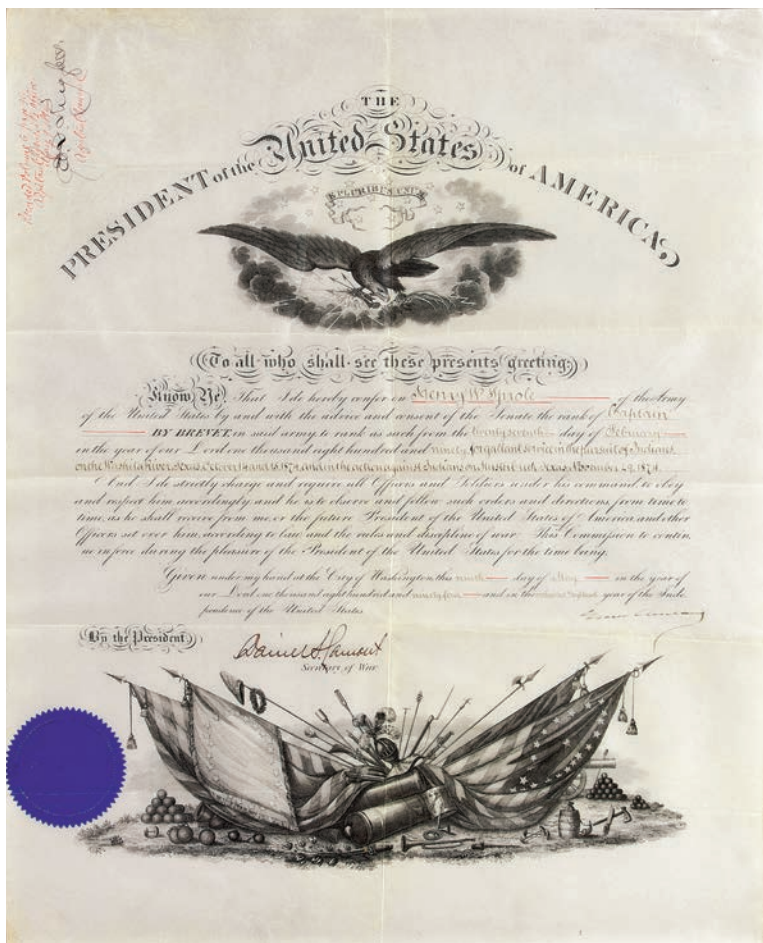 THE
United States
PRESIDENT of the of AMERICA,
E PLURIBUS UNUM
To all who shall see these presents greeting:
Know Ye, That I do hereby confer on Henry W. Sprole of the Army
of the United States by and with the advice and consent of the Senate the rank of Captain
BY BREVET, in said army to rank as such from the twenty seventh day of February
in the year of our Lord one thousand eight hundred and ninety, for gallant service in the pursuit of Indians
on the Washita River, Texas, October 14 and 1874, and in the action against Indians on Texas, November 1874.
And I do strictly charge and require all Officers and Soldiers under his command to obey
and respect him accordingly and he is to observe and follow such orders and directions, from time to
time, as he shall receive from me, or the future President of the United States of America, and other
Officers set over him, according to law and the rules and discipline of war. This Commission to contin
ue in force during the pleasure of the President of the United States for the time being.
Given under my hand at the City of Washington this ninth day of May in the year of
our Lord one thousand eight hundred and ninety four and in the one hundred year of the Inde
pendence of the United States.
By the President
Daniel S. Lamont
Secretary of War